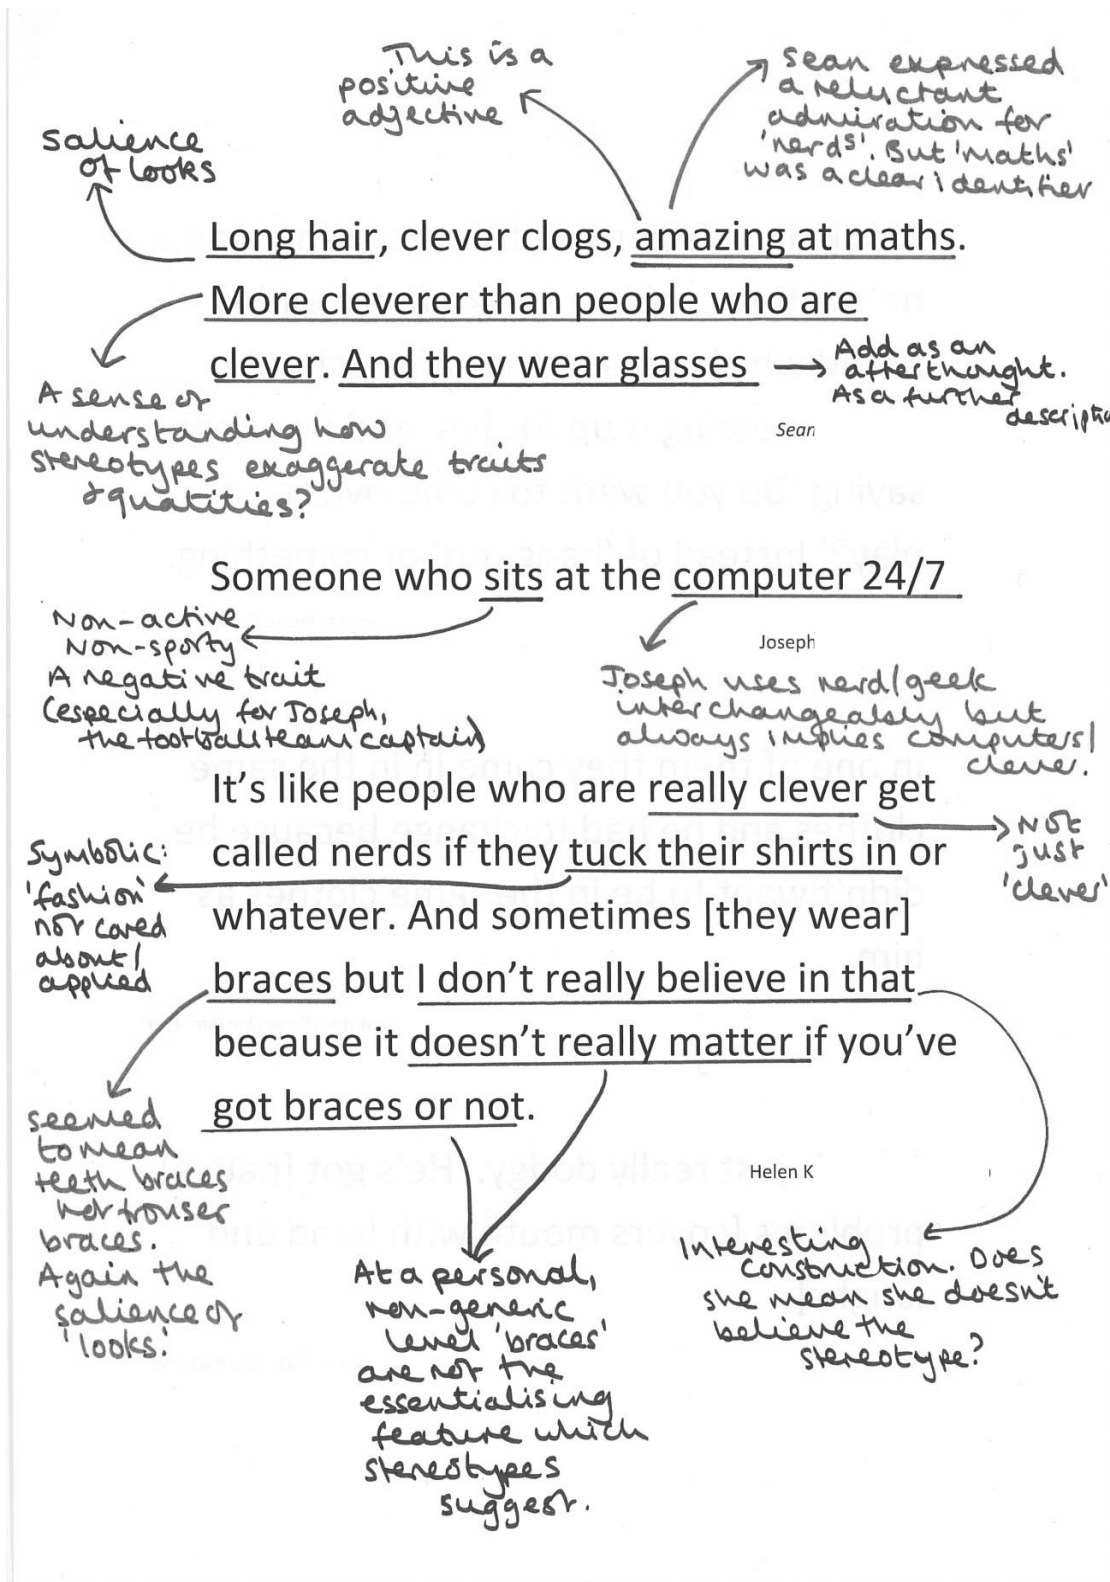 This is a
positive
adjective
Sean expressed
a reluctant
admiration for
'nerds'. But 'maths'
was a clear identifier
Salience
of looks
Long hair, clever clogs, amazing at maths.
More cleverer than people who are
clever. And they wear glasses
Add as an
afterthought.
As a further
descriptio
Sean
A sense of
understanding how
stereotypes exaggerate traits
& quatities?
Someone who sits at the computer 24/7
Non-active
Non-sporty
A negative trait
(especially for Joseph,
the football team captain)
Joseph
Joseph uses nerd/geek
interchangeably but
always implies computers/
clever.
It's like people who are really clever get
called nerds if they tuck their shirts in or
whatever. And sometimes [they wear]
braces but I don't really believe in that
because it doesn't really matter if you've
got braces or not.
Not
just
'clever'
Symbolic:
'fashion'
not cared
about/
applied
Helen K
seemed
to mean
teeth braces
not trouser
braces.
Again the
salience of
'looks'.
At a personal,
non-generic
level 'braces'
are not the
essentialising
feature which
stereotypes
suggest.
Interesting
construction. Does
she mean she doesn't
believe the
stereotype?